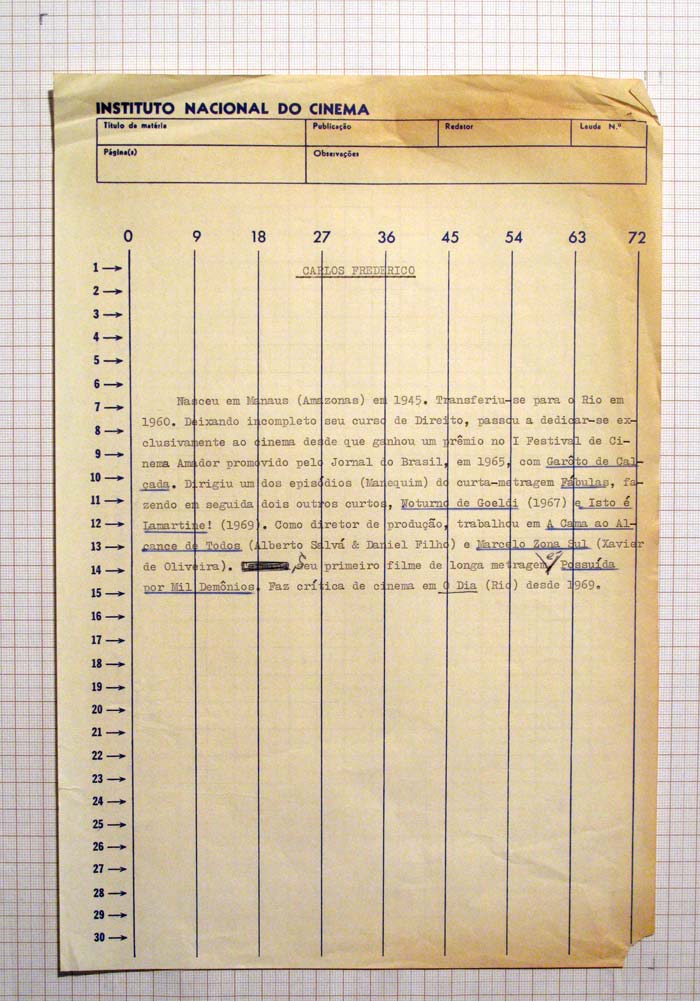 INSTITUTO NACIONAL DO CINEMA
Título da matéria Publicação Redator Lauda N.º
Página(s) Observações
0 9 18 27 36 45 54 63 72
1 → CARLOS FREDERICO
2 →
3 →
4 →
5 →
6 →
Nasceu em Manaus (Amazonas) em 1945. Transferiu-se para o Rio em
7 →
1960. Deixando incompleto seu curso de Direito, passou a dedicar-se ex-
8 →
clusivamente ao cinema desde que ganhou um prêmio no I Festival de Ci-
9 →
nema Amador promovido pelo Jornal do Brasil, em 1965, com Garôto de Cal-
10 →
çada. Dirigiu um dos episódios (Manequim) do curta-metragem Fábulas, fa-
11 →
zendo em seguida dois outros curtos, Noturno de Goeldi (1967) e Isto é
12 →
Lamartine! (1969). Como diretor de produção, trabalhou em A Cama ao Al-
13 →
cance de Todos (Alberto Salvá & Daniel Filho) e Marcelo Zona Sul (Xavier
14 →
de Oliveira). Seu primeiro filme de longa metragem é Possuída
15 →
por Mil Demônios. Faz crítica de cinema em O Dia (Rio) desde 1969.
16 →
17 →
18 →
19 →
20 →
21 →
22 →
23 →
24 →
25 →
26 →
27 →
28 →
29 →
30 →